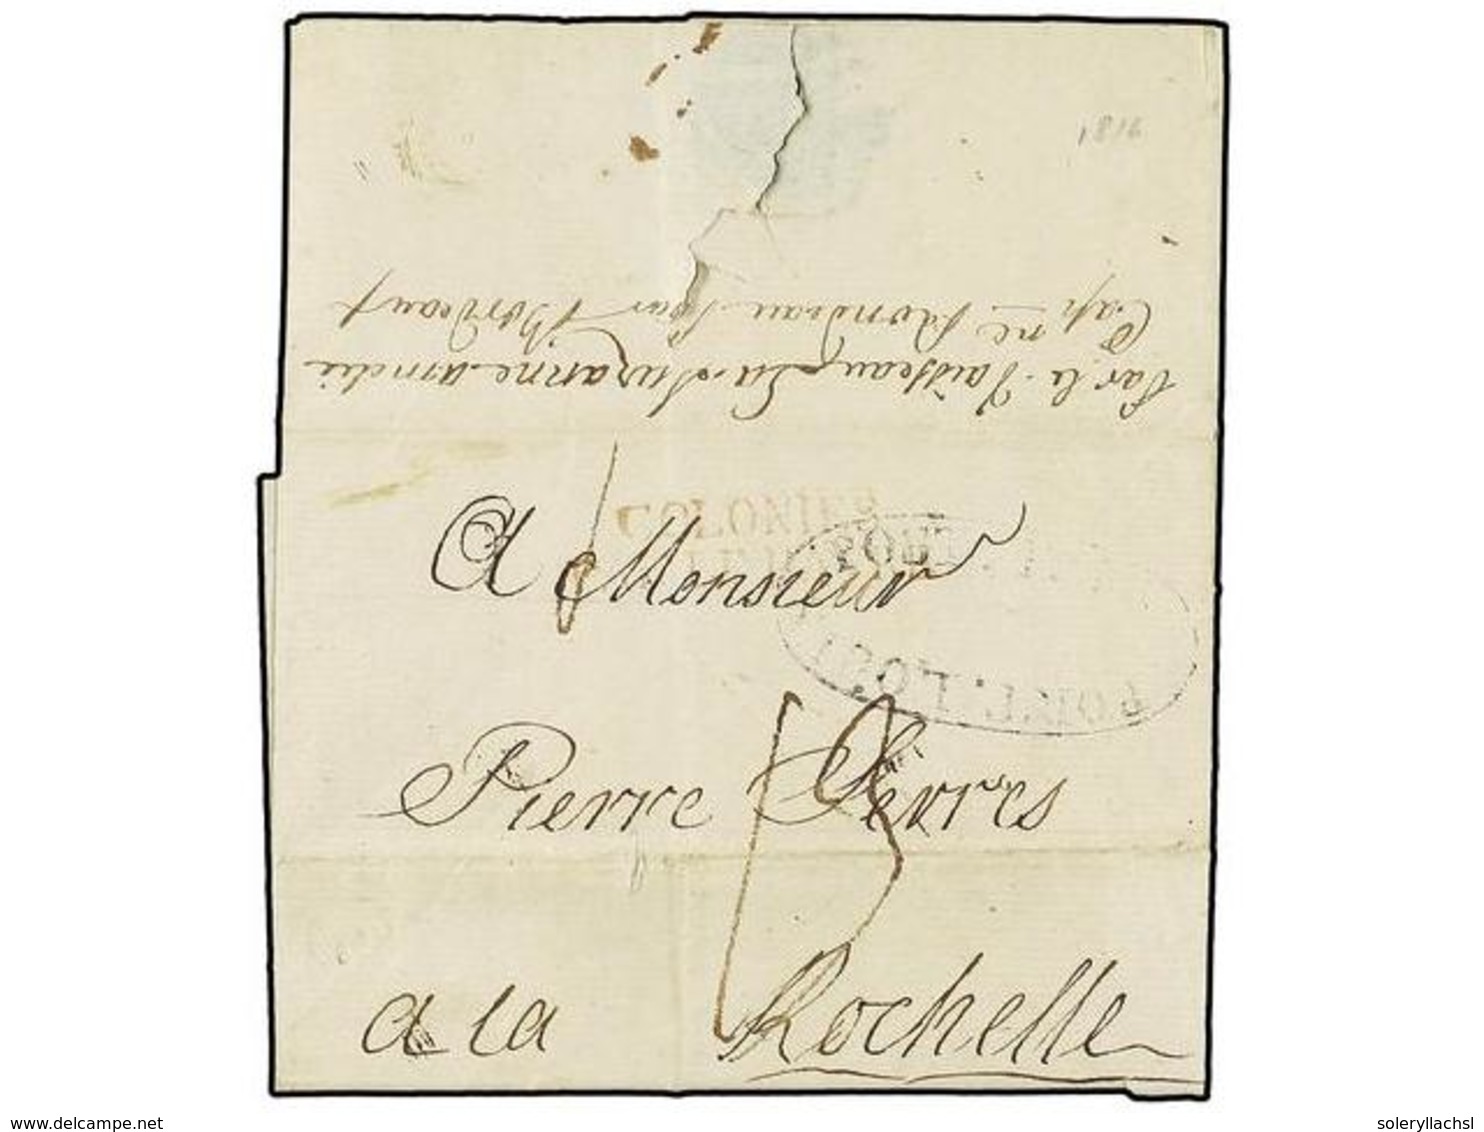 1816
Par le Vaisseau La Suzanne armdie
Cap.ne Rondeau pour Bordeaux
COLONIES
A Monsieur
Pierre Serres
13
a la Rochelle
www.delcampe.net
soleryllachsl